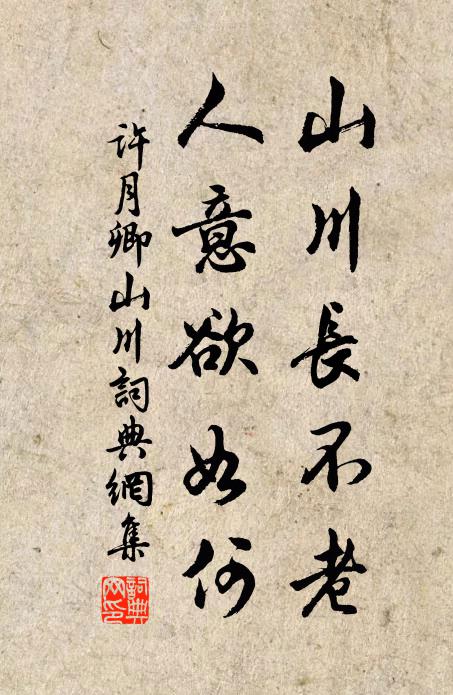 山川長不老
人意欲如何
許月卿山川詞典網集
詞典
网印